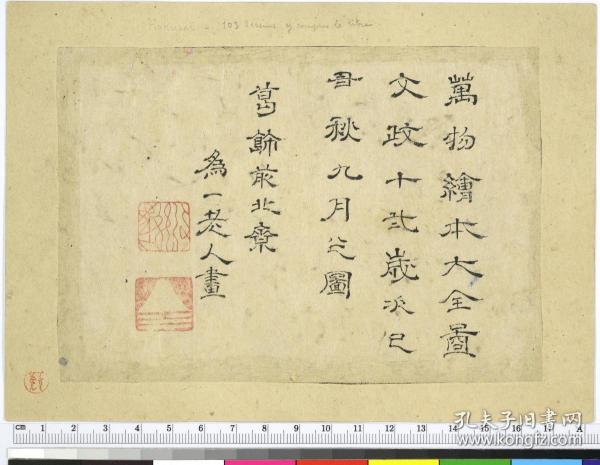 Hokusai - 103 dessins y compris le titre
萬物繪本大全啚
文政十弐歳次己
丑秋九月之圖
葛飾前北齋
為一老人畫
cm 1 2 3 4 5 6 7 8 9 10 11 12 13 14 15 16 17 A
孔夫子旧书网
www.kongfz.com